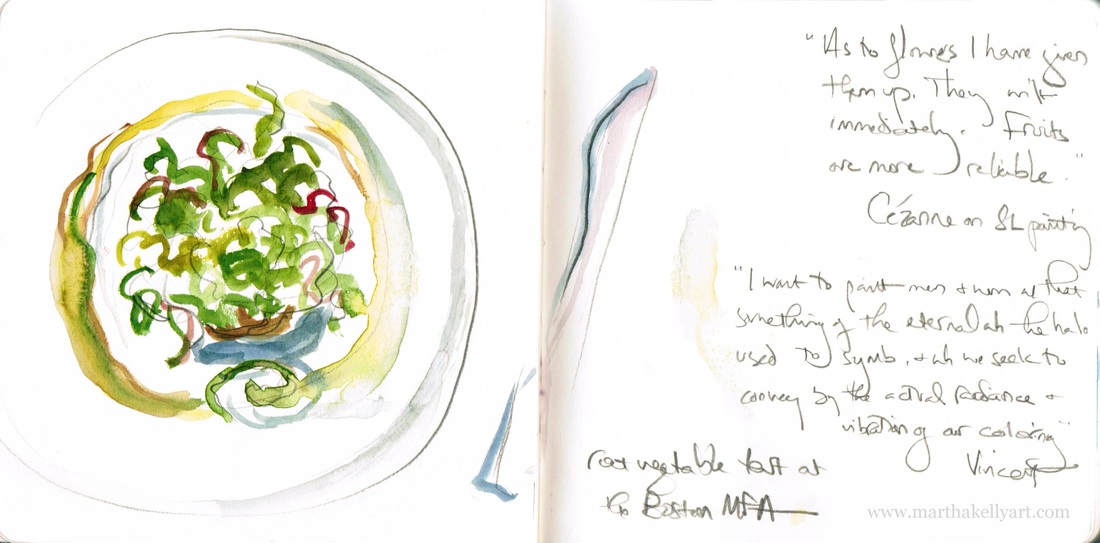 "As to flowers I have given
them up. They wilt
immediately. Fruits
are more reliable."
Cézanne on SL painting
"I want to paint men + women w/ that
something of the eternal wh the halo
used to symb., + wh we seek to
convey by the actual radiance +
vibration of our coloring"
Vincent
root vegetable tart at
the Boston MFA
www.marthakellyart.com